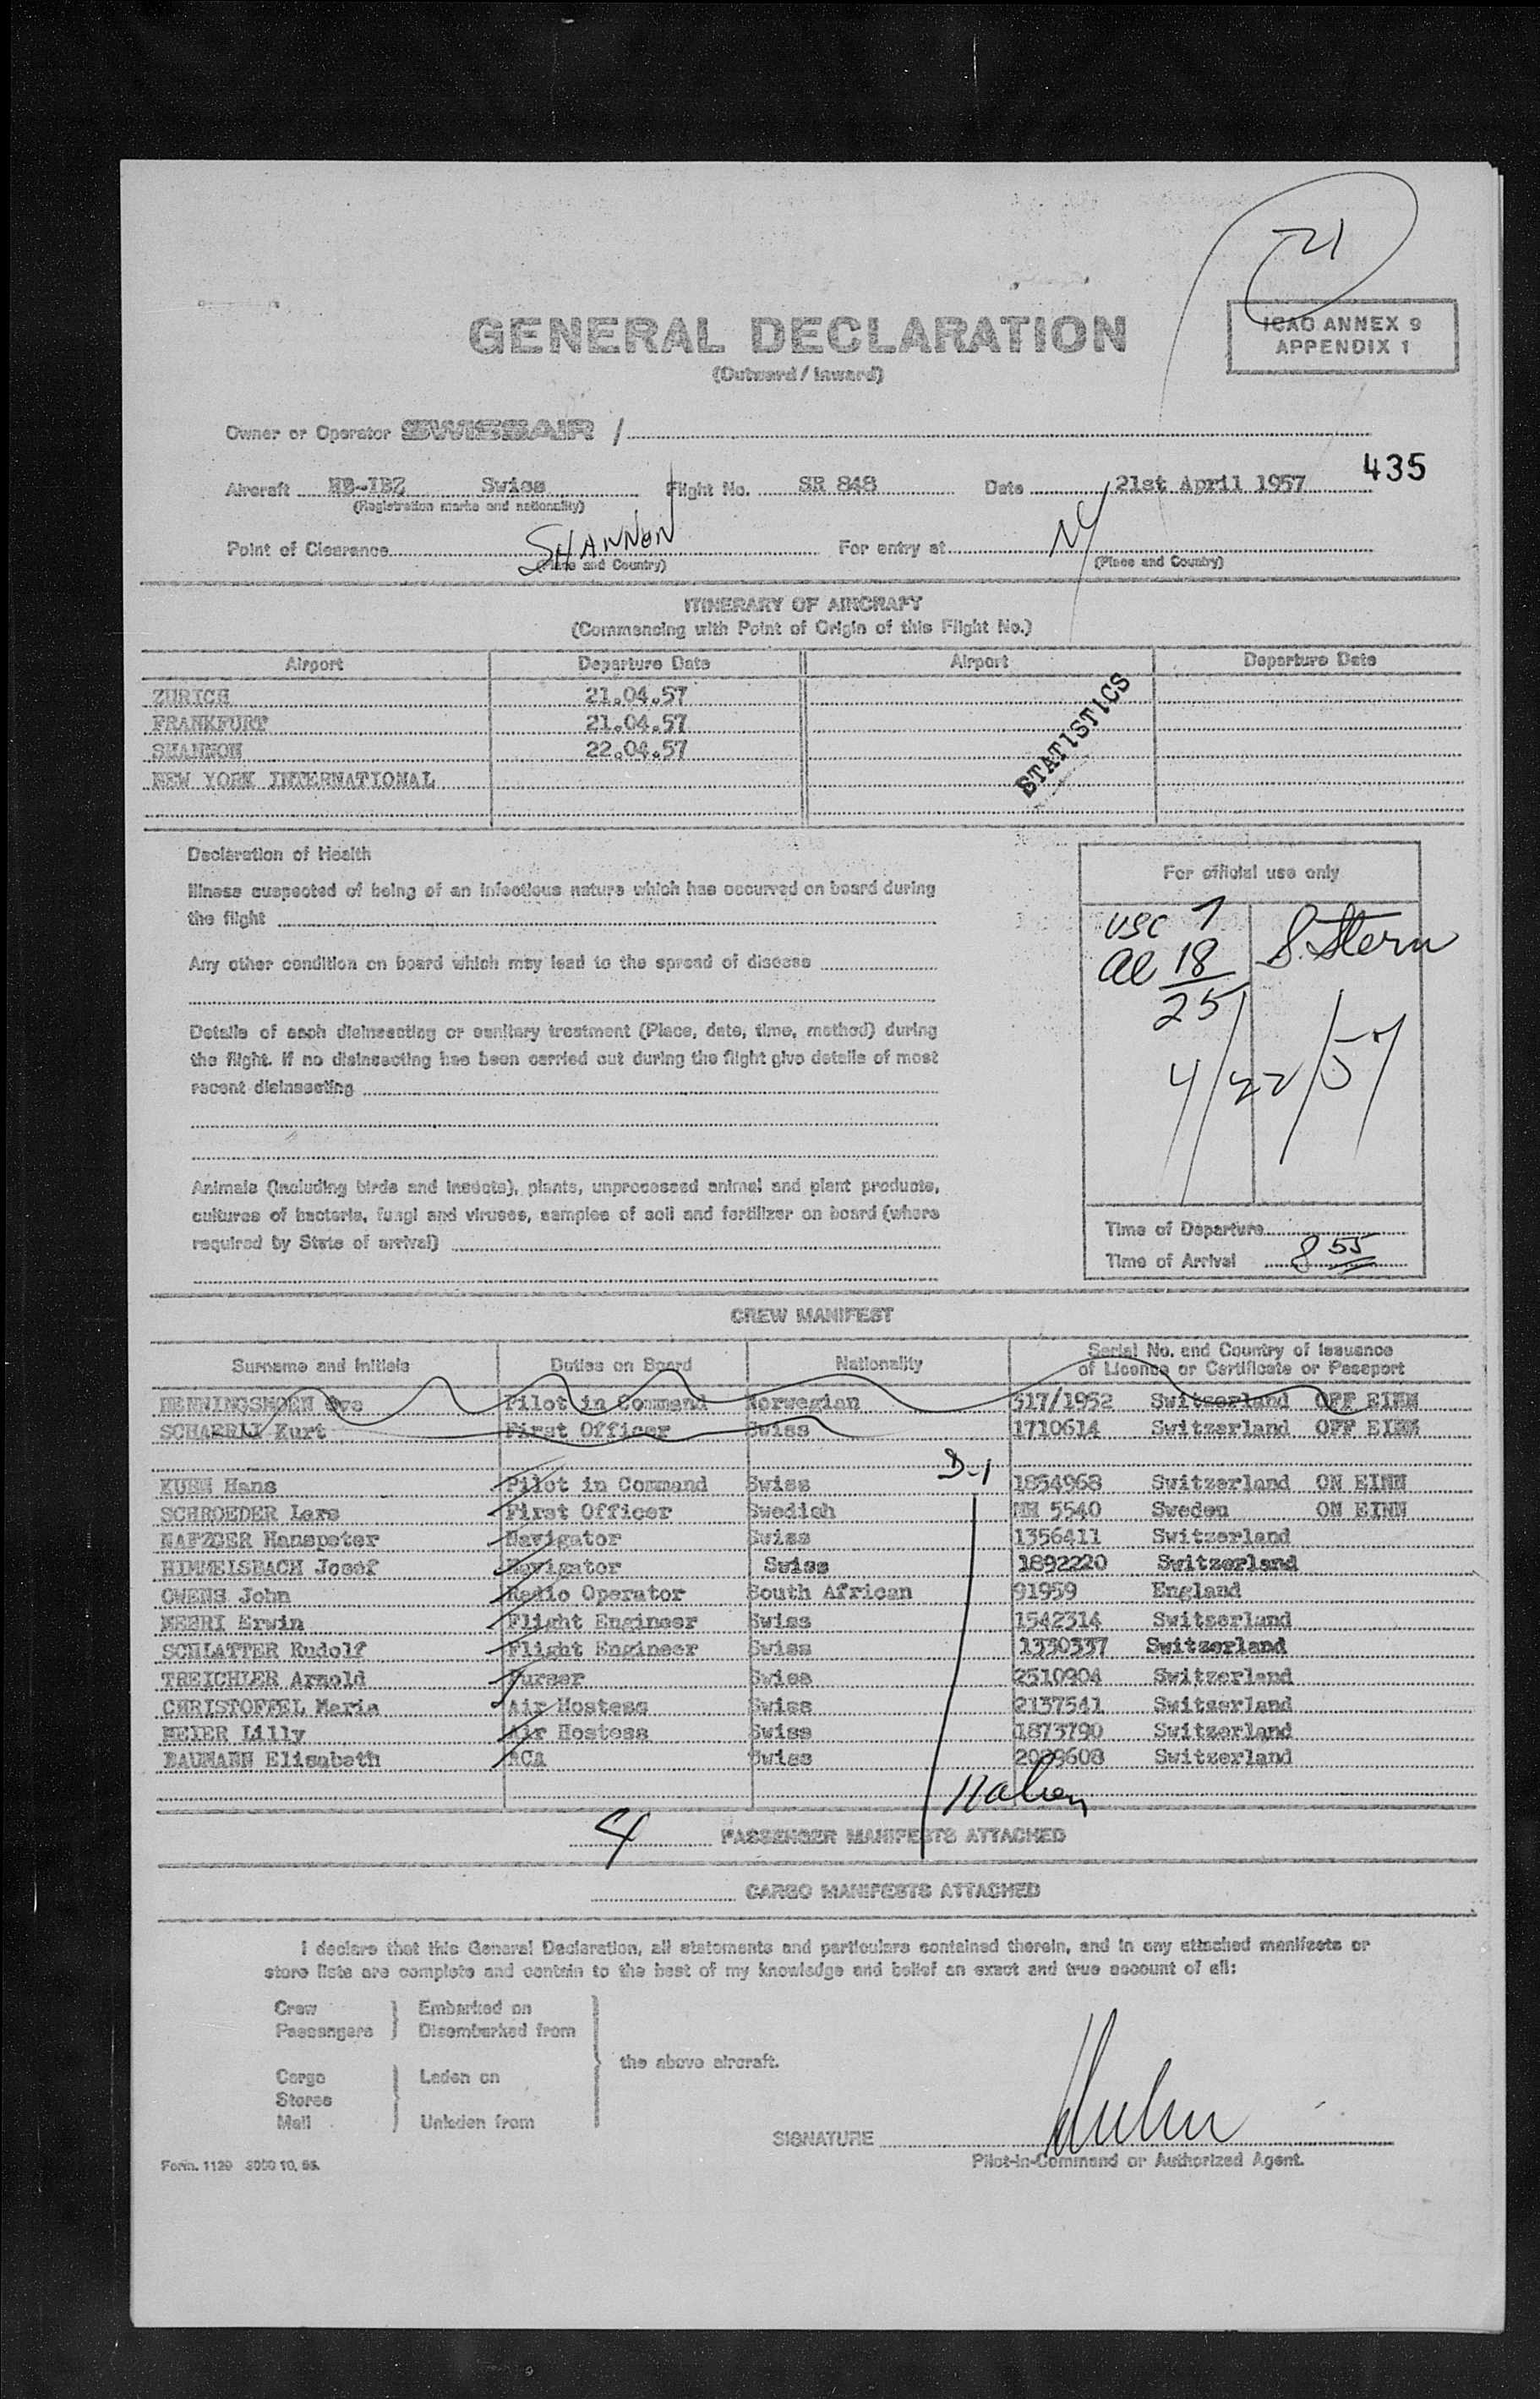 21
GENERAL DECLARATION
(Outward / Inward)
ICAO ANNEX 9
APPENDIX 1
Owner or Operator SWISSAIR /
435
Aircraft HB-IBZ Swiss Flight No. SR 848 Date 21st April 1957
(Registration marks and nationality)
Point of Clearance SHANNON For entry at NY
(Place and Country) (Place and Country)
ITINERARY OF AIRCRAFT
(Commencing with Point of Origin of this Flight No.)
Airport Departure Date Airport Departure Date
ZURICH 21.04.57
FRANKFURT 21.04.57
SHANNON 22.04.57
NEW YORK INTERNATIONAL
STATISTICS
Declaration of Health
Illness suspected of being of an infectious nature which has occurred on board during
the flight
Any other condition on board which may lead to the spread of disease
Details of each disinsecting or sanitary treatment (Place, date, time, method) during
the flight. If no disinsecting has been carried out during the flight give details of most
recent disinsecting
Animals (including birds and insects), plants, unprocessed animal and plant products,
cultures of bacteria, fungi and viruses, samples of soil and fertilizer on board (where
required by State of arrival)
For official use only
USC 7
Al 18
25
S. Stern
4/22/57
Time of Departure
Time of Arrival 8 55
CREW MANIFEST
Surname and Initials Duties on Board Nationality Serial No. and Country of Issuance
of Licence or Certificate or Passport
HENNINGSMOEN Ove Pilot in Command Norwegian 517/1952 Switzerland OFF EINN
SCHAERLI Kurt First Officer Swiss 1710614 Switzerland OFF EINN
D-1
KUHN Hans Pilot in Command Swiss 1854968 Switzerland ON EINN
SCHROEDER Lars First Officer Swedish NH 5540 Sweden ON EINN
NAFZGER Hanspeter Navigator Swiss 1356411 Switzerland
HIMMELSBACH Josef Navigator Swiss 1892220 Switzerland
OWENS John Radio Operator South African 91959 England
NEERI Erwin Flight Engineer Swiss 1542314 Switzerland
SCHLATTER Rudolf Flight Engineer Swiss 1330337 Switzerland
TREICHLER Arnold Purser Swiss 2510904 Switzerland
CHRISTOFFEL Maria Air Hostess Swiss 2137541 Switzerland
MEIER Lilly Air Hostess Swiss 1873790 Switzerland
BAUMANN Elisabeth ACA Swiss 2029608 Switzerland
4 PASSENGER MANIFESTS ATTACHED
CARGO MANIFESTS ATTACHED
I declare that this General Declaration, all statements and particulars contained therein, and in any attached manifests or
store lists are complete and contain to the best of my knowledge and belief an exact and true account of all:
Crew Embarked on
Passengers Disembarked from
the above aircraft.
Cargo Laden on
Stores
Mail Unladen from
SIGNATURE Kuhn
Pilot-in-Command or Authorized Agent.
Form. 1129 3000 10. 56.